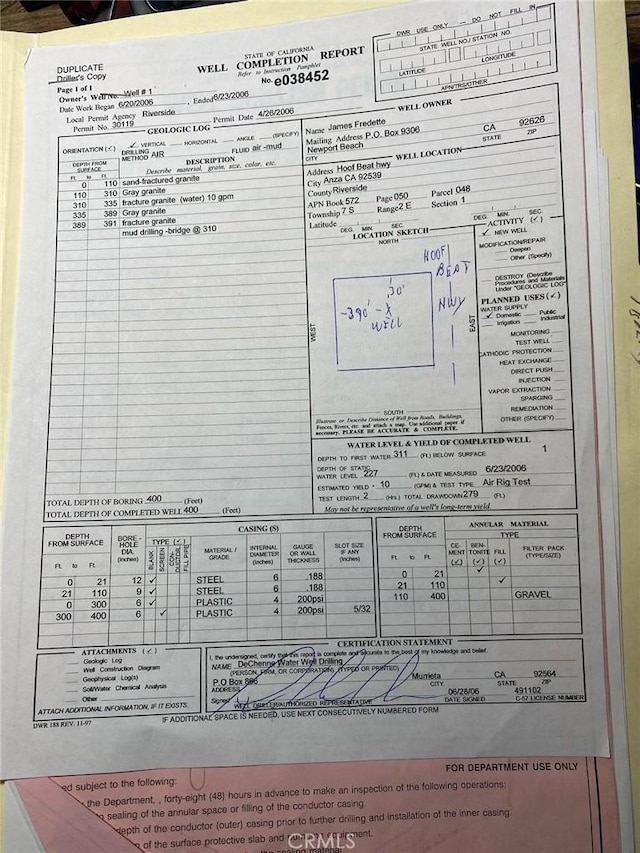 DUPLICATE
Driller's Copy
Page 1 of 1
Owner's Well No. Well # 1
Date Work Began 6/20/2006 , Ended 6/23/2006
Local Permit Agency Riverside
Permit No. 30119 Permit Date 4/26/2006
STATE OF CALIFORNIA
WELL COMPLETION REPORT
Refer to Instruction Pamphlet
No. e038452
DWR USE ONLY — DO NOT FILL IN
STATE WELL NO./ STATION NO.
LATITUDE LONGITUDE
APN/TRS/OTHER
GEOLOGIC LOG
ORIENTATION (✓) ✓ VERTICAL HORIZONTAL ANGLE (SPECIFY)
DRILLING METHOD AIR FLUID air -mud
DEPTH FROM SURFACE
Ft. to Ft.
DESCRIPTION
Describe material, grain, size, color, etc.
0 110 sand-fractured granite
110 310 Gray granite
310 335 fracture granite (water) 10 gpm
335 389 Gray granite
389 391 fracture granite
mud drilling -bridge @ 310
TOTAL DEPTH OF BORING 400 (Feet)
TOTAL DEPTH OF COMPLETED WELL 400 (Feet)
WELL OWNER
Name James Fredette
Mailing Address P.O. Box 9306
Newport Beach CA 92626
CITY STATE ZIP
WELL LOCATION
Address Hoof Beat hwy
City Anza CA 92539
County Riverside
APN Book 572 Page 050 Parcel 048
Township 7 S Range 2 E Section 1
Latitude
DEG. MIN. SEC. DEG. MIN. SEC.
LOCATION SKETCH
NORTH
HOOF
BEAT
HWY
30'
-390'-X
WELL
WEST
EAST
SOUTH
Illustrate or Describe Distance of Well from Roads, Buildings,
Fences, Rivers, etc. and attach a map. Use additional paper if
necessary. PLEASE BE ACCURATE & COMPLETE.
ACTIVITY (✓)
✓ NEW WELL
MODIFICATION/REPAIR
Deepen
Other (Specify)
DESTROY (Describe
Procedures and Materials
Under "GEOLOGIC LOG"
PLANNED USES (✓)
WATER SUPPLY
✓ Domestic Public
Irrigation Industrial
MONITORING
TEST WELL
CATHODIC PROTECTION
HEAT EXCHANGE
DIRECT PUSH
INJECTION
VAPOR EXTRACTION
SPARGING
REMEDIATION
OTHER (SPECIFY)
WATER LEVEL & YIELD OF COMPLETED WELL
DEPTH TO FIRST WATER 311 (Ft.) BELOW SURFACE 1
DEPTH OF STATIC
WATER LEVEL 227 (Ft.) & DATE MEASURED 6/23/2006
ESTIMATED YIELD • 10 (GPM) & TEST TYPE Air Rig Test
TEST LENGTH 2 (Hrs.) TOTAL DRAWDOWN 279 (Ft.)
May not be representative of a well's long-term yield.
DEPTH FROM SURFACE
Ft. to Ft.
BORE-HOLE DIA. (Inches)
CASING (S)
TYPE (✓)
BLANK SCREEN CON-DUCTOR FILL PIPE
MATERIAL / GRADE
INTERNAL DIAMETER (Inches)
GAUGE OR WALL THICKNESS
SLOT SIZE IF ANY (Inches)
0 21 12 ✓ STEEL 6 .188
21 110 9 ✓ STEEL 6 .188
0 300 6 ✓ PLASTIC 4 200psi
300 400 6 ✓ PLASTIC 4 200psi 5/32
DEPTH FROM SURFACE
Ft. to Ft.
ANNULAR MATERIAL
TYPE
CE-MENT (✓) BEN-TONITE (✓) FILL (✓) FILTER PACK (TYPE/SIZE)
0 21 ✓
21 110 ✓
110 400 GRAVEL
ATTACHMENTS (✓)
Geologic Log
Well Construction Diagram
Geophysical Log(s)
Soil/Water Chemical Analysis
Other
ATTACH ADDITIONAL INFORMATION, IF IT EXISTS.
CERTIFICATION STATEMENT
I, the undersigned, certify that this report is complete and accurate to the best of my knowledge and belief.
NAME DeChenne Water Well Drilling
(PERSON, FIRM, OR CORPORATION) (TYPED OR PRINTED)
P.O Box 866 Murrieta CA 92564
ADDRESS CITY STATE ZIP
Signed 06/28/06 491102
WELL DRILLER/AUTHORIZED REPRESENTATIVE DATE SIGNED C-57 LICENSE NUMBER
DWR 188 REV. 11-97
IF ADDITIONAL SPACE IS NEEDED, USE NEXT CONSECUTIVELY NUMBERED FORM
FOR DEPARTMENT USE ONLY
ed subject to the following:
the Department, , forty-eight (48) hours in advance to make an inspection of the following operations:
sealing of the annular space or filling of the conductor casing.
depth of the conductor (outer) casing prior to further drilling and installation of the inner casing.
of the surface protective slab and
the sealing material.
CRMLS